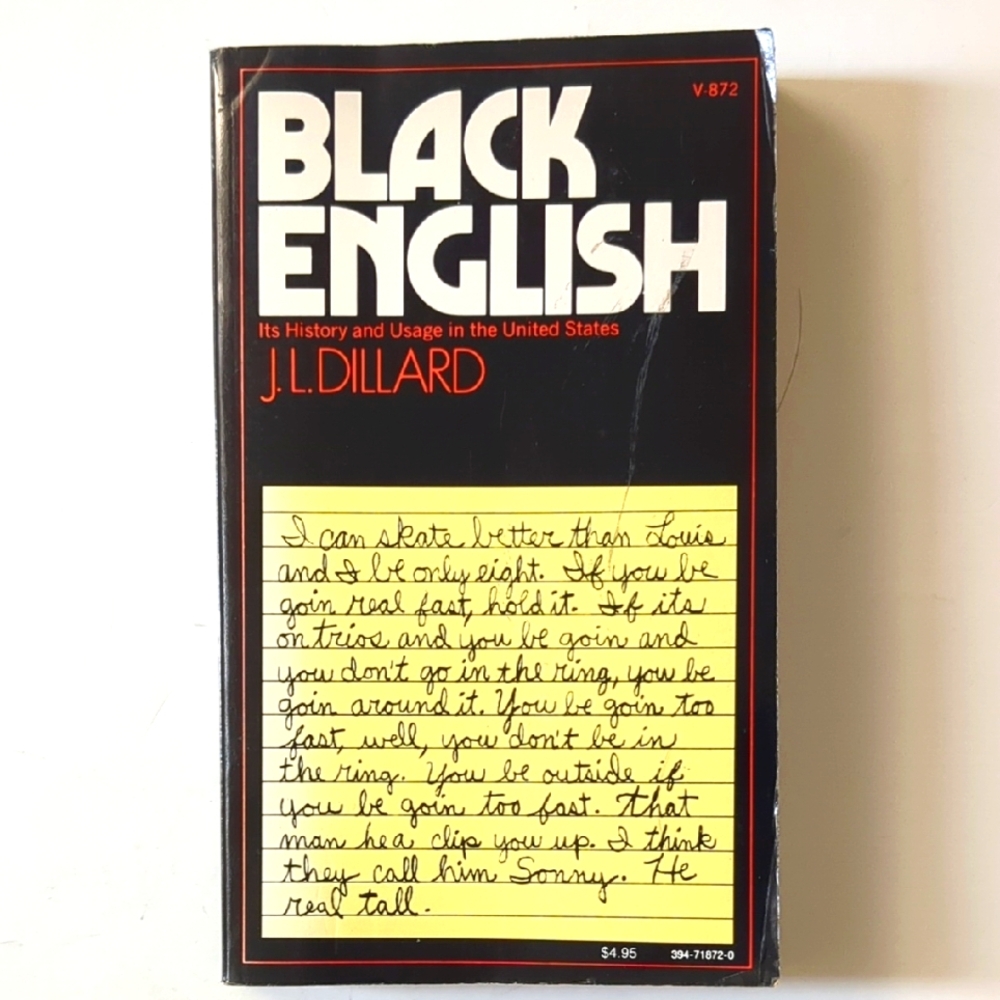 V-872
BLACK
ENGLISH
Its History and Usage in the United States
J.L.DILLARD
I can skate better than Louis
and I be only eight. If you be
goin real fast, hold it. If its
on trios and you be goin and
you don't go in the ring, you be
goin around it. You be goin too
fast, well, you don't be in
the ring. You be outside if
you be goin too fast. That
man he a clip you up. I think
they call him Sonny. He
real tall.
$4.95 394-71872-0